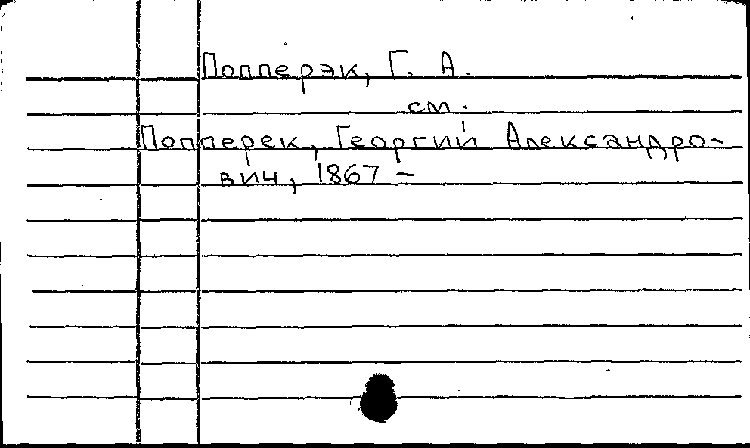 Попперэк, Г. А.
см.
Попперек, Георгий Александро-
вич, 1867 –